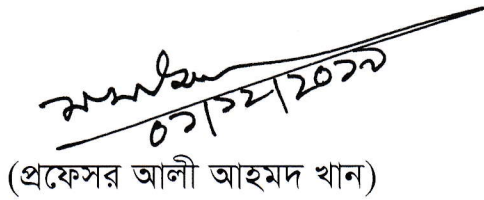 ০১/১২/২০১৯
(প্রফেসর আলী আহমদ খান)